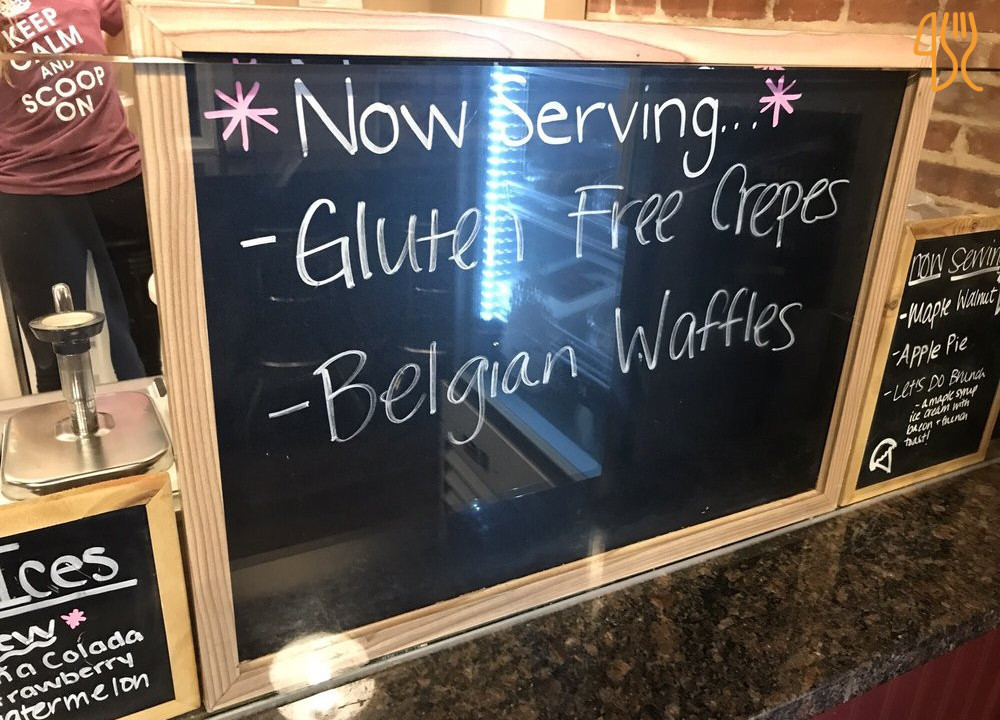 KEEP
CALM
AND
SCOOP
ON
* Now Serving... *
- Gluten Free Crepes
- Belgian Waffles
now Serving
- Maple Walnut
- Apple Pie
- Let's Do Brunch
- a maple syrup
ice cream with
bacon + french
toast!
Ices
*
Colada